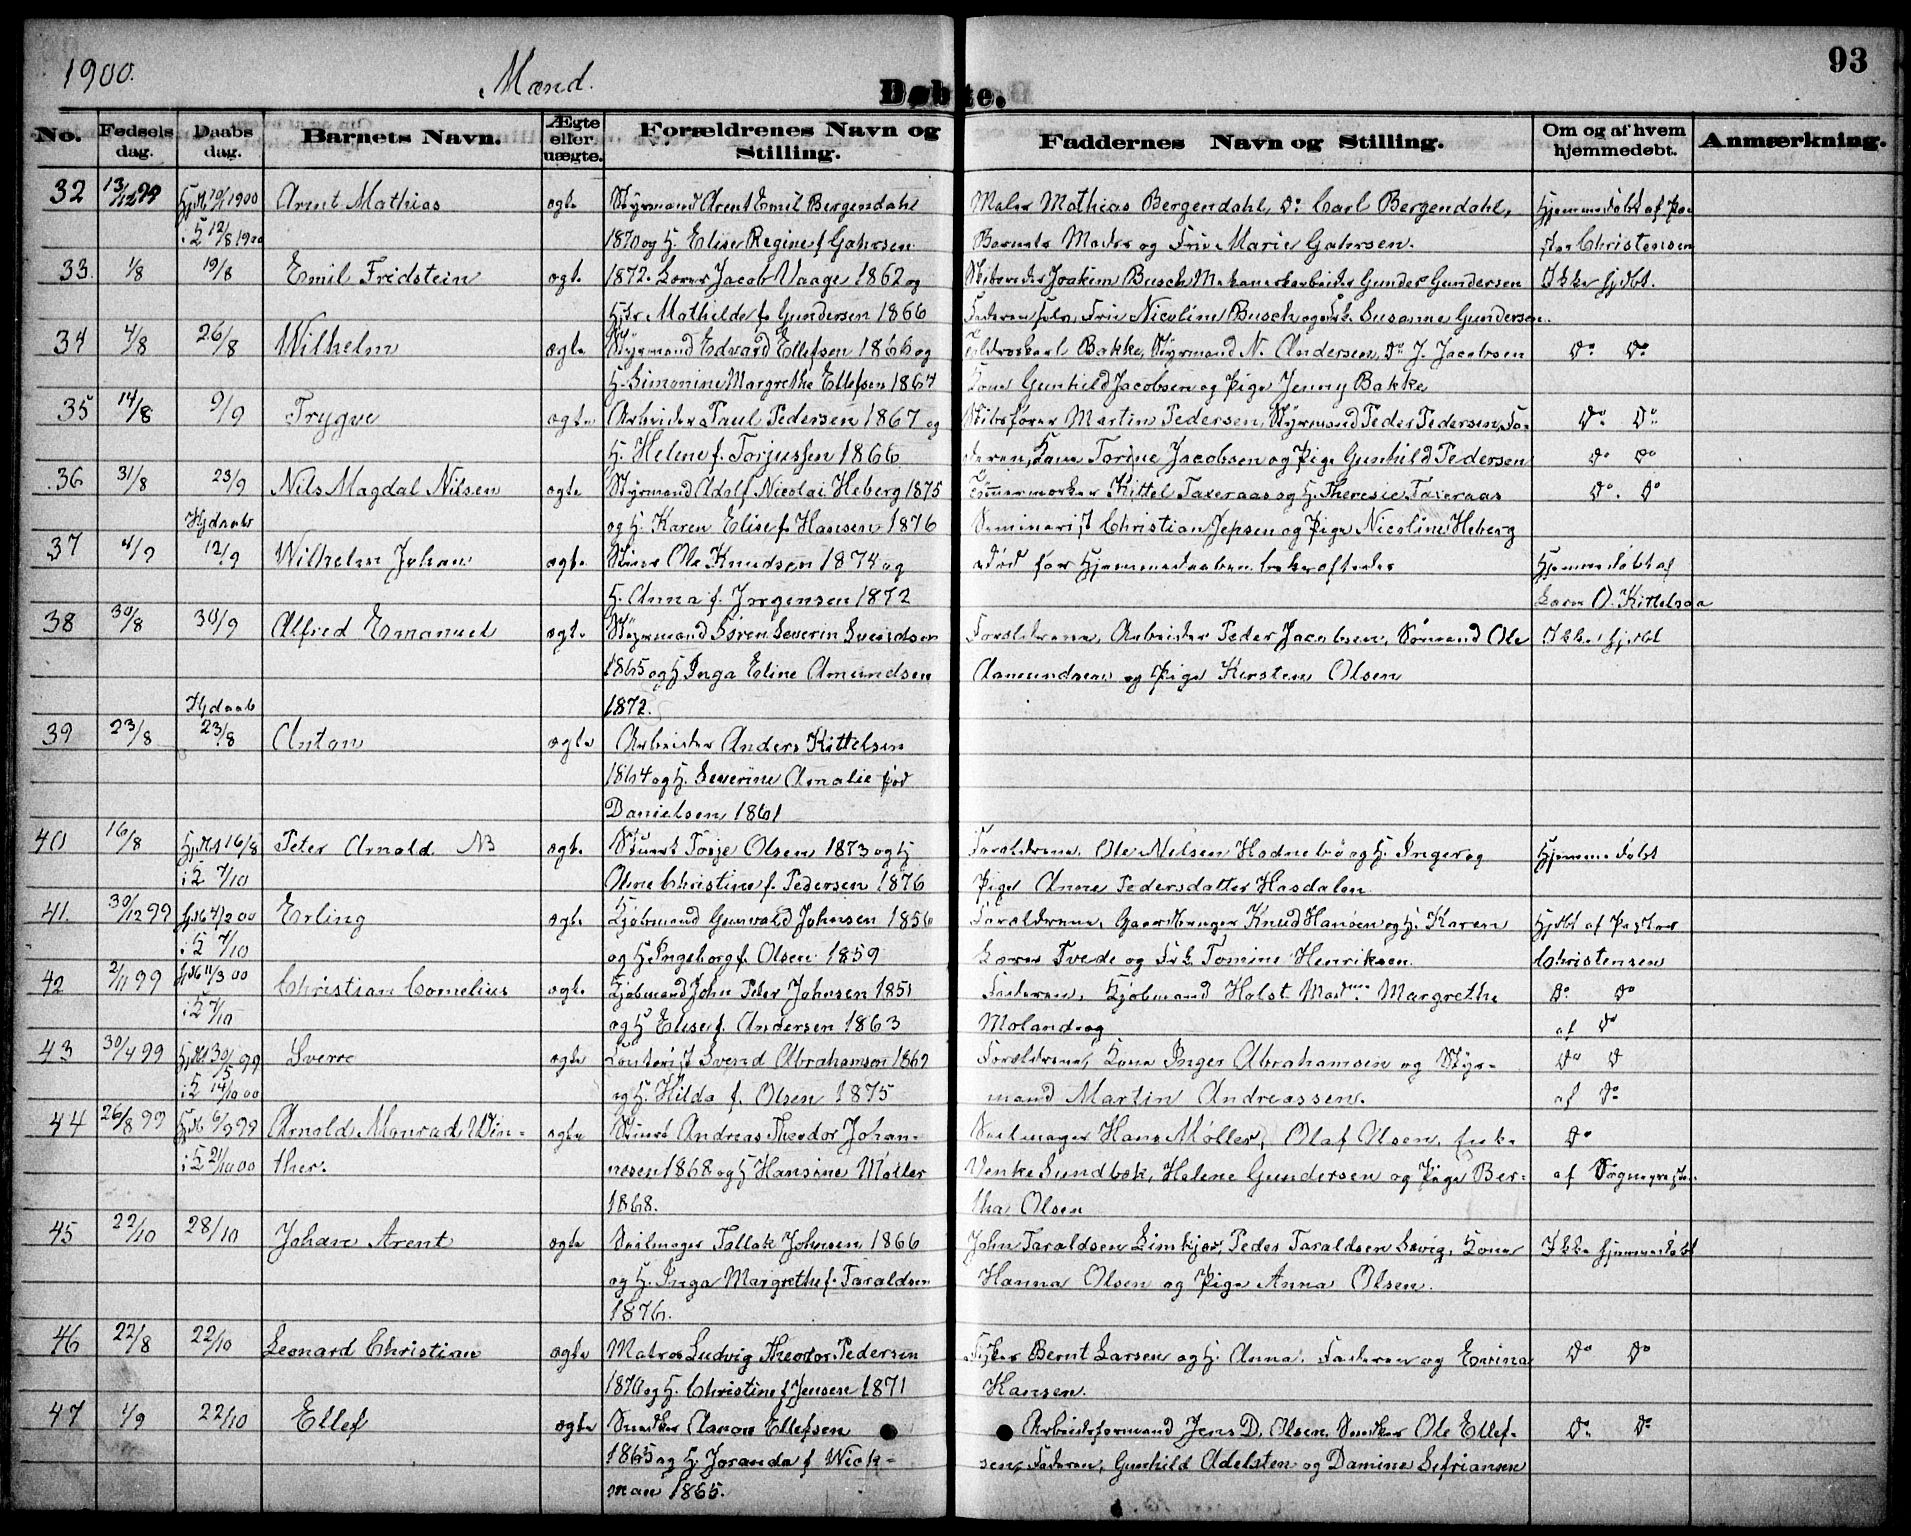 1900.
Mænd.
Døbte.
93
No. Fødsels dag. Daabs dag. Barnets Navn. Ægte eller uægte. Forældrenes Navn og Stilling. Faddernes Navn og Stilling. Om og af hvem hjemmedøbt. Anmærkning.
32 13/12 99 Hjdbt 10/1 1900 Arent Mathias ægte Styrmand Arent Emil Bergendahl Maler Mathias Bergendahl, Do Carl Bergendahl, Hjemmedøbt af Pa-
i K 12/8 1900 1870 og H. Elise Regine f Gahrsen Barnets Moder og Frue Marie Gahrsen. stor Christensen
33. 1/8 19/8 Emil Fridstein ægte 1872. Lærer Jacob Vaage 1862 og Skibsreder Joakim Busch Mekanerarbeider Gunder Gundersen Ikke hjdbt.
Hstr Mathilde f. Gundersen 1866 Faderen selv, Frue Nicoline Busch og Frk. Susanne Gundersen.
34 4/8 26/8 Wilhelm ægte Styrmand Edvard Ellefsen 1866 og Carl Bakke, Styrmand N. Andersen, Do J. Jacobsen Do Do
H. Simonine Margrethe Ellefsen 1867 Kone Gunhild Jacobsen og Pige Jenny Bakke
35 14/8 9/9 Trygve ægte Arbeider Paul Pedersen 1867 og Skibsfører Martin Pedersen, Styrmand Peder Pedersen, Fa- Do Do
H. Helene f. Torjussen 1866 deren, Kone Torine Jacobsen og Pige Gunhild Pedersen Do Do
36 31/8 23/9 Nils Magdal Nilsen ægte Styrmand Adolf Nicolai Heberg 1875 Tømmermerker Kittel Taxeraas og H. Theresie Taxeraas Do. Do
Hjdaab og H. Karen Elise f. Hansen 1876 Seminarist Christian Jepsen og Pige Nicoline Heberg
37 4/9 12/9 Wilhelm Johan ægte Ole Knudsen 1874 og død før Hjemmedaaben bekræftedes Hjemmedøbt af
H. Anna f. Jørgensen 1872 Lærer O. Kittelsaa
38 30/8 30/9 Alfred Emanuel ægte Styrmand Søren Severin Svendsen Forældrene, Arbeider Peder Jacobsen, Sømand Ole Ikke hjdbt
1865 og H Inga Eline Amundsen Aamundsen og Pige Kirsten Olsen
Hjdaab 1872.
39 23/8 23/8 Anton ægte Arbeider Anders Kittelsen
1864 og H. Severine Amalie fød
Danielsen 1861
40 16/8 Hjdbt 16/8 Peter Arnold. NB ægte Stuert Torje Olsen 1873 og H Forældrene. Ole Nilsen Hodnebø og H. Inger og Hjemmedøbt
i K 7/10 Oline Christine f. Pedersen 1876 Pige Anne Pedersdatter Hasdalen.
41. 30/12 99 hjdb 4/2 00 Erling ægte Kjøbmand Gunvald Johnsen 1856 Forældrene, Gaardbruger Knud Hansen og H. Karen Hjdbt af Pastor
i K 7/10 og H. Ingeborg f. Olsen 1859 Lærer Tvede og Frk Tomine Henriksen. Christensen
42 2/11 99 hjdb 11/3 00 Christian Cornelius ægte Kjøbmand John Peter Johnsen 1851 Faderen, Kjøbmand Holst Madme Margrethe Do Do
i K 7/10 og H Elise f. Andersen 1863 Molande og af Do
43 30/4 99 hjdbt 30/5 99 Sverre ægte Kontorist Svend Abrahamsen 1867 Forældrene, Kone Inger Abrahamsen og Styr- Do D
i K 14/10 00 og H. Hilda f. Olsen 1875 mand Martin Andreassen. af Do
44 26/8 99 hjdb 6/9 99 Arnold Monrad Win- ægte Stuert Andreas Theodor Johan- Seilmager Hans Møller, Olaf Olsen, Enke Do
i K 21/10 00 ther. nesen 1868 og H Hansine Møller Venke Sundbæk, Helene Gundersen og Pige Ber- af Sognepræsten
1868. tha Olsen
45 22/10 28/10 Johan Arent ægte Seilmager Tallak Johnsen 1866 John Taraldsen Limkjær, Peder Taraldsen Lævig, Kone Ikke hjemmedøbt
og H. Inga Margrethe f. Taraldsen Hanna Olsen og Pige Anna Olsen.
1876.
46 22/8 22/10 Leonard Christian ægte Matros Ludvig Theodor Pedersen Fisker Bernt Larsen og H. Anna. Faderen og Enrine Do Do
1870 og H. Christine f Jensen 1871 Hansen.
47 1/9 22/10 Ellef ægte Snedker Aanon Ellefsen Arbeidsformand Jens D. Olsen, Snedker Ole Ellef- Do Do
1863 og H Joranda f Wick- sen, Faderen, Gunhild Adelsten og Damine Sefriansen
man 1865.